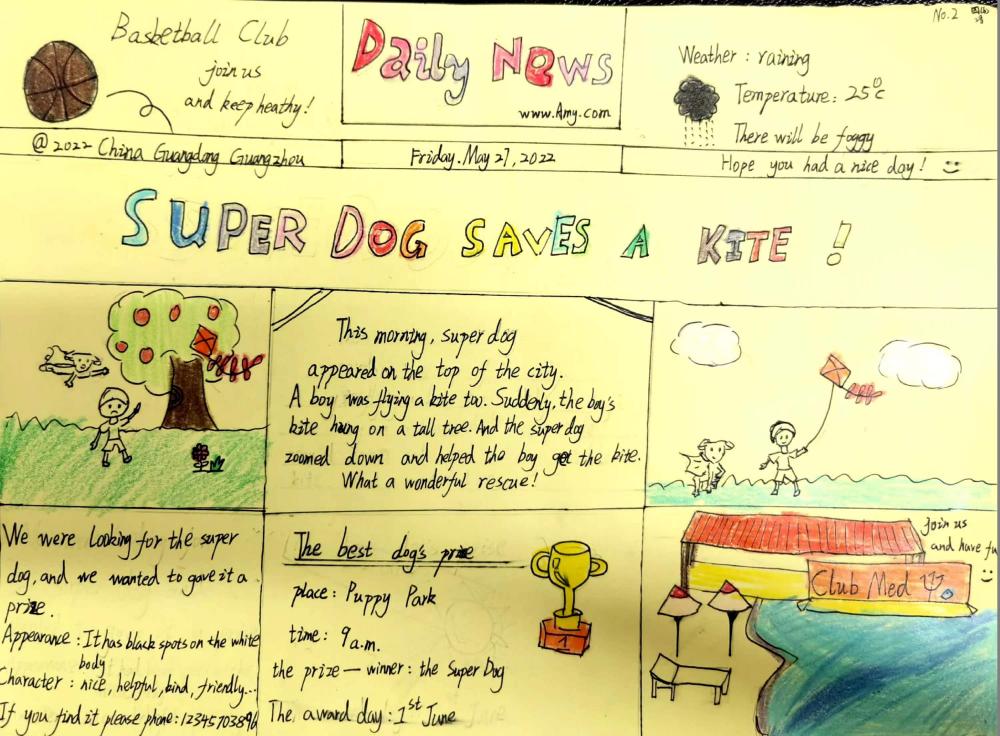 Basketball Club
join us
and keep heathy!
Daily News
www.Amy.com
No.2
Weather : raining
Temperature: 25°c
There will be foggy
@ 2022 China Guangdong Guangzhou
Friday. May 27, 2022
Hope you had a nice day!
SUPER DOG SAVES A KITE !
This morning, super dog
appeared on the top of the city.
A boy was flying a kite too. Suddenly, the boy's
kite hung on a tall tree. And the super dog
zoomed down and helped the boy get the kite.
What a wonderful rescue!
We were looking for the super
dog, and we wanted to gave it a
prize.
Appearance : It has black spots on the white
body
Character : nice, helpful, kind, friendly...
If you find it please phone: 12345703896
The best dog's prize
place : Puppy Park
time: 9 a.m.
the prize — winner : the Super Dog
The award day : 1st June
1
join us
and have fu
Club Med